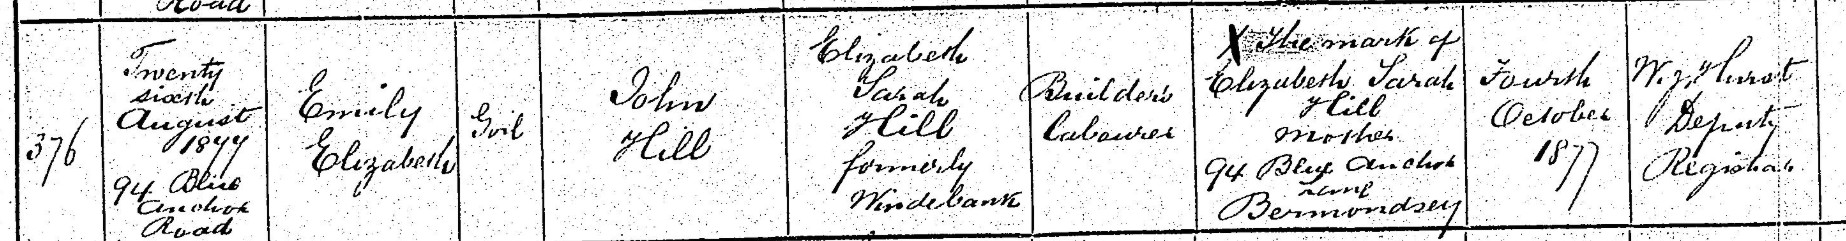 Road
376
Twenty
sixth
August
1877
94 Blue
Anchor
Road
Emily
Elizabeth
Girl
John
Hill
Elizabeth
Sarah
Hill
formerly
Windebank
Builder's
Labourer
X The mark of
Elizabeth Sarah
Hill
Mother
94 Blue Anchor
Lane
Bermondsey
Fourth
October
1877
Hurst
Deputy
Registrar